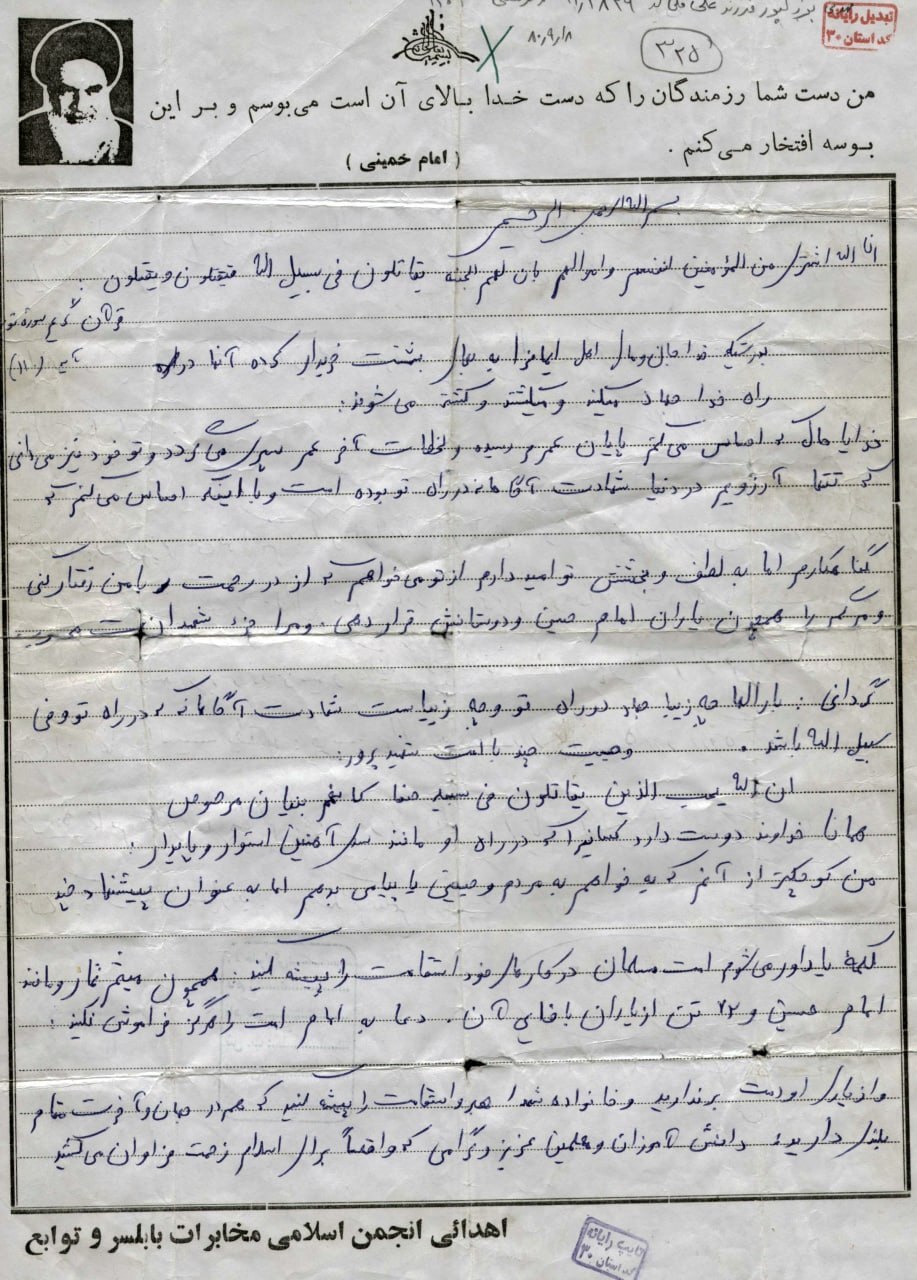 تبدیل رایانه
کد استان ۳۰
۸۰/۹/۸
۳۲۵
من دست شما رزمندگان را که دست خدا بالای آن است می‌بوسم و بر این
بوسه افتخار می‌کنم .
( امام خمینی )
بسم الله الرحمن الرحیم
انا الله اشتری من المؤمنین انفسهم و اموالهم بان لهم الجنه یقاتلون فی سبیل الله فیقتلون و یقتلون :
قرآن کریم سوره توبه
آیه (۱۱۱)
بدرستیکه خدا جان و مال اهل ایمانرا به بهای بهشت خریداری کرده آنها در
راه خدا جهاد میکنند و میکشند و کشته می‌شوند:
خدایا حال که احساس می‌کنم پایان عمرم رسیده و لحظات آخر عمر سپری می‌گردد و تو خود نیز می‌دانی
که تنها آرزویم در دنیا شهادت آگاهانه در راه تو بوده است و با اینکه احساس می‌کنم که
گناهکارم اما به لطف و بخشش تو امید دارم از تو می‌خواهم که از در رحمت با من رفتار کنی
و مرگم را همچون یاران امام حسین و دوستانش قرار دهی و مرا جزء شهیدان محسوب
گردانی : بارالها چه زیبا جهاد در راه تو و چه زیباست شهادت آگاهانه که در راه تو و فی
سبیل الله باشد . وصیت چند با امت شهید پرور:
ان الله یحب الذین یقاتلون فی سبیله صفا کانهم بنیان مرصوص
همانا خداوند دوست دارد کسانیرا که در راه او مانند سدی آهنین استوار و پایدار :
من کوچکتر از آنم که به خواهم به مردم وصیتی یا پیامی بدهم اما به عنوان پیشنهاد چند
کلمه یادآور می‌شوم امت مسلمان در کارهای خود استقامت را پیشه کنید : همچون میثم تمار و مانند
امام حسین و ۷۲ تن از یاران باوفایش . دعا به امام امت را هرگز فراموش نکنید :
و از یاری او دست برندارید و خانواده شهدا صبر و استقامت را پیشه کنید که هم در جهان و آخرت مقام
بلندی دارید دانش آموزان و معلمین عزیز و گرامی که واقعاً برای اسلام زحمت فراوان می‌کشید
اهدائی انجمن اسلامی مخابرات بابلسر و توابع
تایپ رایانه
کد استان ۳۰